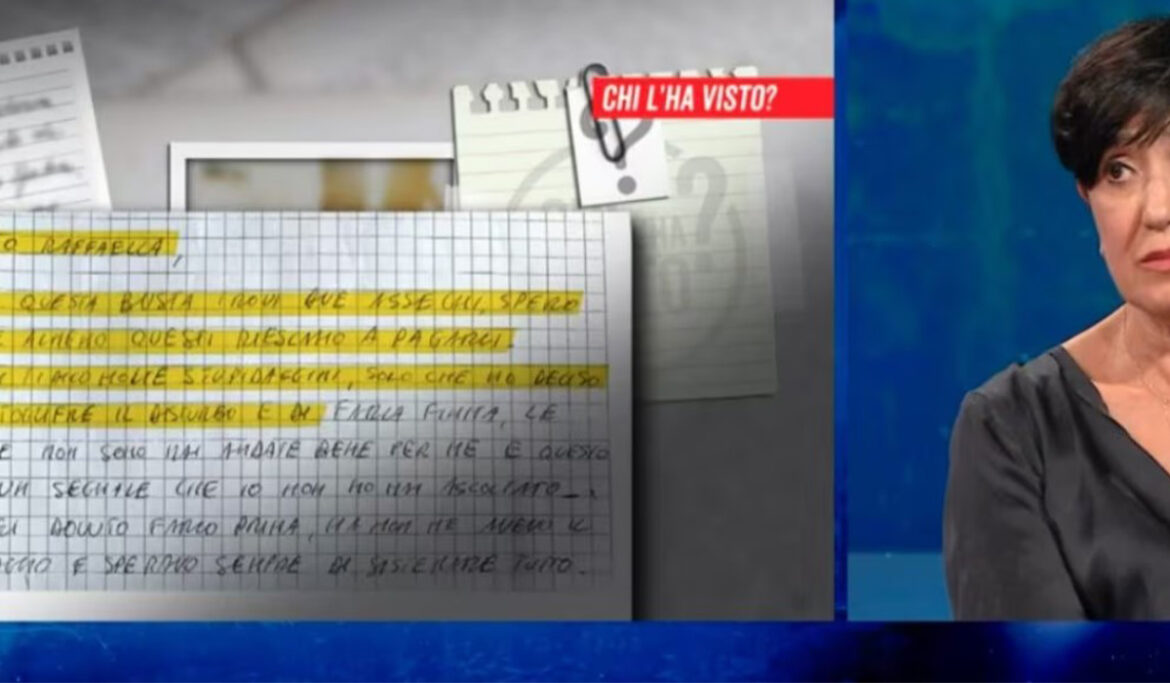 CHI L'HA VISTO?
RAFFAELLA,
QUESTA BUSTA TROVI DUE ASSEGNI, SPERO
ALMENO QUESTI RIESCANO A PAGARLI.
MOLTE STUPIDAGGINI, SOLO CHE HO DECISO
TOGLIERE IL DISTURBO E DI FARLA FINITA, LE
E NON SONO MAI ANDATE BENE PER ME E QUESTO
UN SEGNALE CHE IO NON HO MAI ASCOLTATO
DOVUTO FARLO PRIMA, MA NON NE AVEVO IL
E SPERAVO SEMPRE DI SISTEMARE TUTTO.